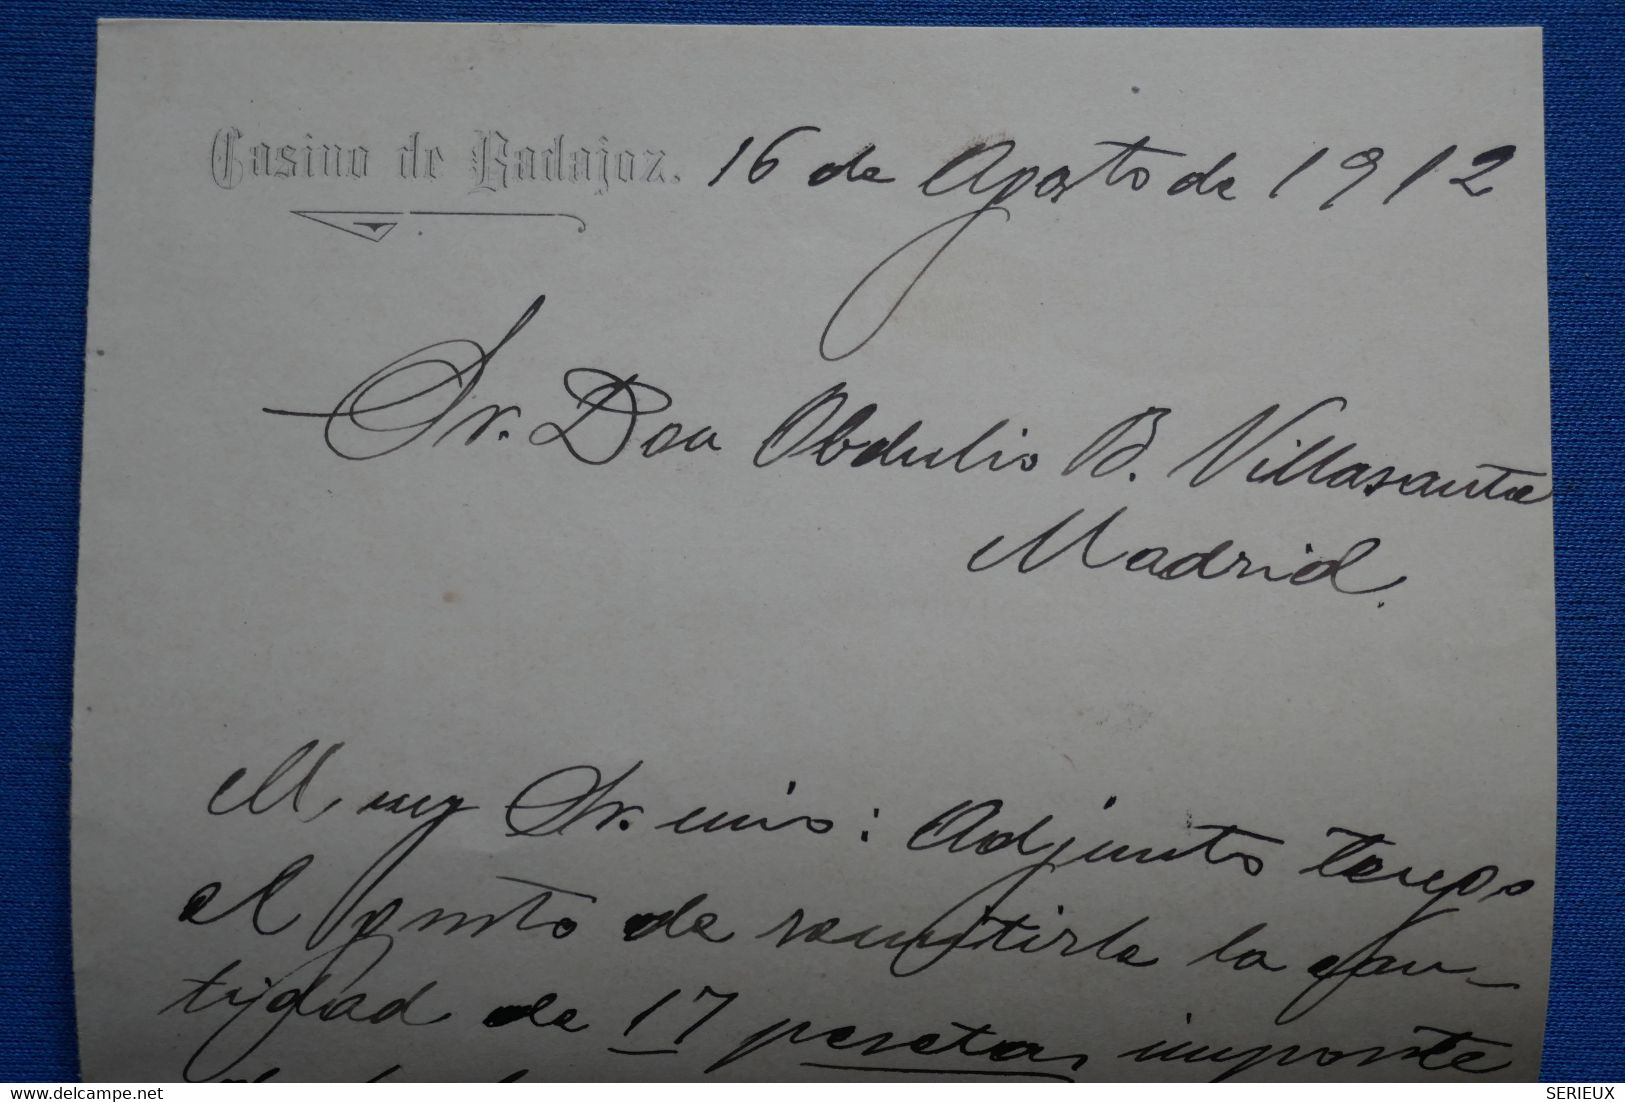 Casino de Badajoz. 16 de Agosto de 1912
Sr. Don Obdulio B. Villasante
Madrid.
Muy Sr. mio: Adjunto tengo
el gusto de remitirle la can-
tidad de 17 pesetas importe
delcampe.net
SERIEUX